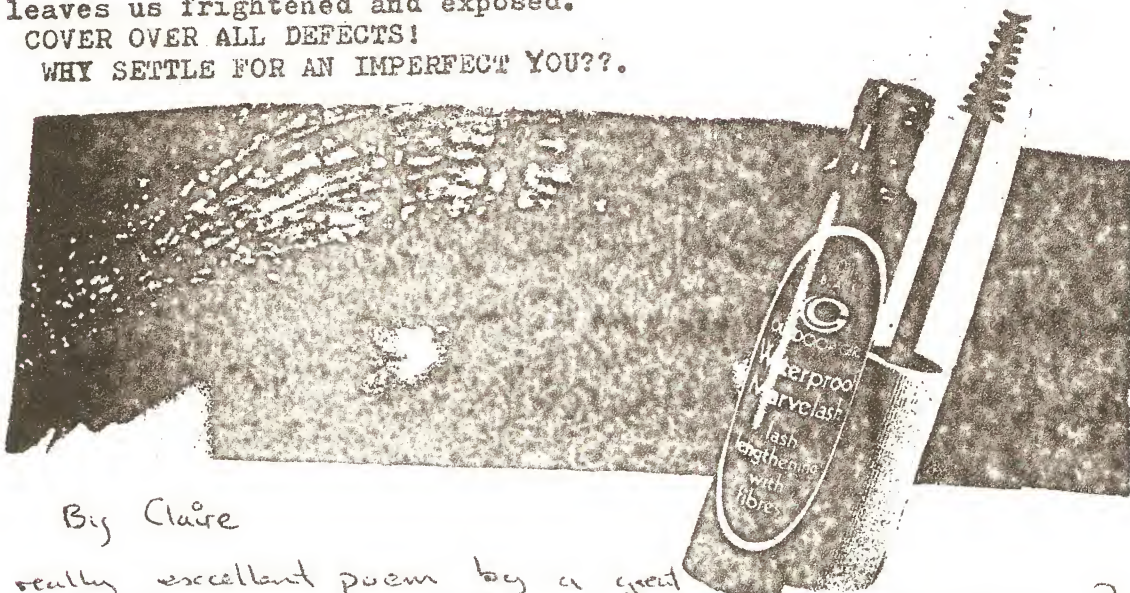 leaves us frightened and exposed.
COVER OVER ALL DEFECTS!
WHY SETTLE FOR AN IMPERFECT YOU??.
Waterproof
Marvelash
lash
lengthening
with
fibres
Big Claire
really excellent poem by a great